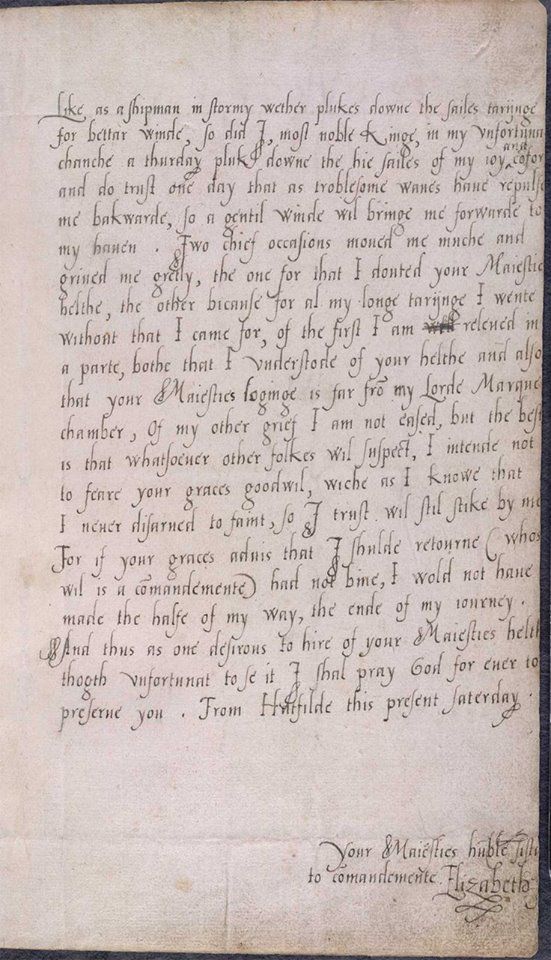 Like as a shipman in stormy wether plukes downe the sailes tarijnge
for bettar winde, so did I, most noble Kinge, in my vnfortuna
chanche a thurday pluk downe the hie sailes of my ioy and cofor
and do trust one day that as troblesome waues haue repulse
me bakwarde, so a gentil winde wil bringe me forwarde to
my hauen. Two chief occasions moued me muche and
griued me gretly, the one for that I douted your Maiestie
helthe, the other bicause for al my longe tarijnge I wente
without that I came for, of the first I am releued in
a parte, bothe that I vnderstode of your helthe and also
that your Maiesties loginge is far frō my Lorde Marques
chamber, Of my other grief I am not eased, but the best
is that whatsoeuer other folkes wil suspect, I intende not
to feare your graces goodwil, wiche as I knowe that
I neuer disarued to faint, so I trust wil stil stike by me
For if your graces aduis that I shulde retourne (whos
wil is a cōmandemente) had not bine, I wold not haue
made the halfe of my way, the ende of my iourney.
And thus as one desirous to hire of your Maiesties helth
thogth vnfortunat to se it I shal pray God for euer to
preserue you. From Hatfilde this present saterday.
Your Maiesties hūble sistr
to cōmandemente Elizabeth